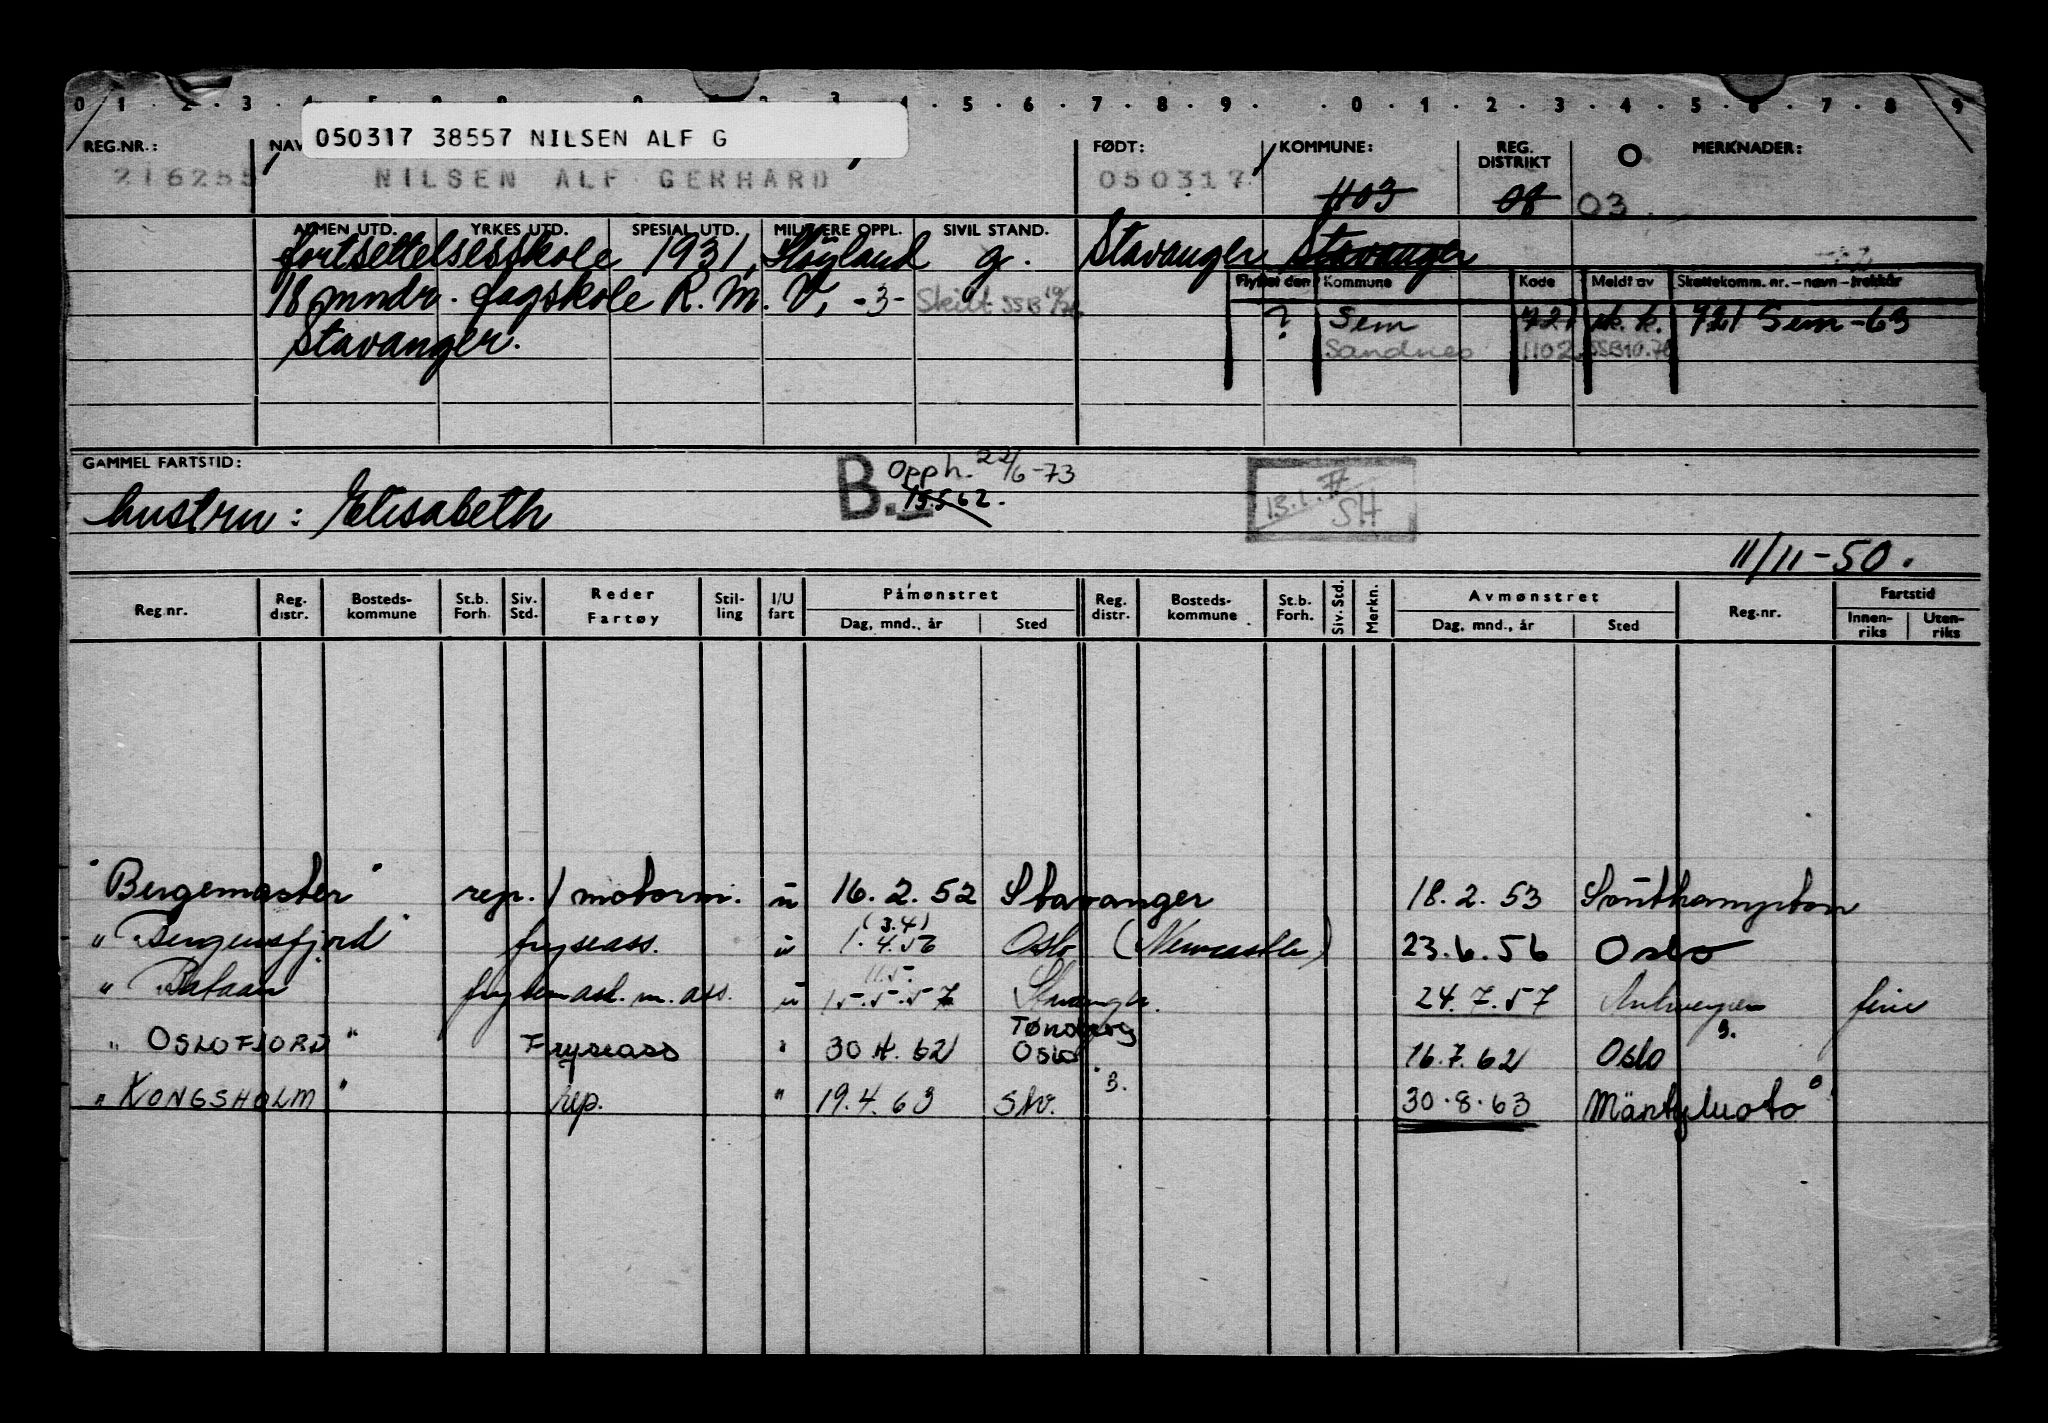 0 1 . 2 . 3 . 5 . 6 . 7 . 8 . 9 . . 0 . 1 . 2 . 3 . 4 . 5 . 6 . 7 . 8 . 9
050317 38557 NILSEN ALF G
REG.NR.: NAV FØDT: KOMMUNE: REG. DISTRIKT O MERKNADER:
216255 NILSEN ALF GERHARD 050317 1103 08 03
ALMEN UTD. YRKES UTD. SPESIAL UTD. MILITÆRE OPPL. SIVIL STAND.
fortsettelsesskole 1931, Høyland g. Stavanger Stavanger
Flyttet den Kommune Kode Meldt av Skattekomm. nr. – navn – trekkår
18 mndr. fagskole R. M. V, -3- Skilt SSB 10/70
? Sem 721 sk. k. 721 Sem -63
Stavanger. Sandnes 1102 SSB10.70
GAMMEL FARTSTID: B. Opph. 22/6-73
15.5.62.
13.1.77 SH
hustru: Elisabeth
11/11-50.
Reg.nr. Reg. distr. Bosteds- kommune St.b. Forh. Siv. Std. Reder Fartøy Stil- ling I/U fart Påmønstret Reg. distr. Bosteds- kommune St.b. Forh. Siv. Std. Merkn. Avmønstret Reg.nr. Fartstid
Dag, mnd., år Sted Dag, mnd., år Sted Innen- riks Uten- riks
"Bergemaster" rep. / motorm. u 16. 2. 52 Stavanger 18. 2. 53 Southampton
(3.4)
" Bergensfjord" fryseass. u 1. 4. 56 Oslo (Newcastle) 23. 6. 56 Oslo
11.5.
" Bataan frysemask. m. ass. u 15.5.57 Stavanger. 24. 7. 57 Antwerpen
Tønsberg 3.
" OSLOFJORD " Fryseass " 30 4. 62 Oslo 16. 7. 62 Oslo
" KONGSHOLM " rep. " 19. 4. 63 Stv. 3. 30. 8. 63 Mäntyluoto